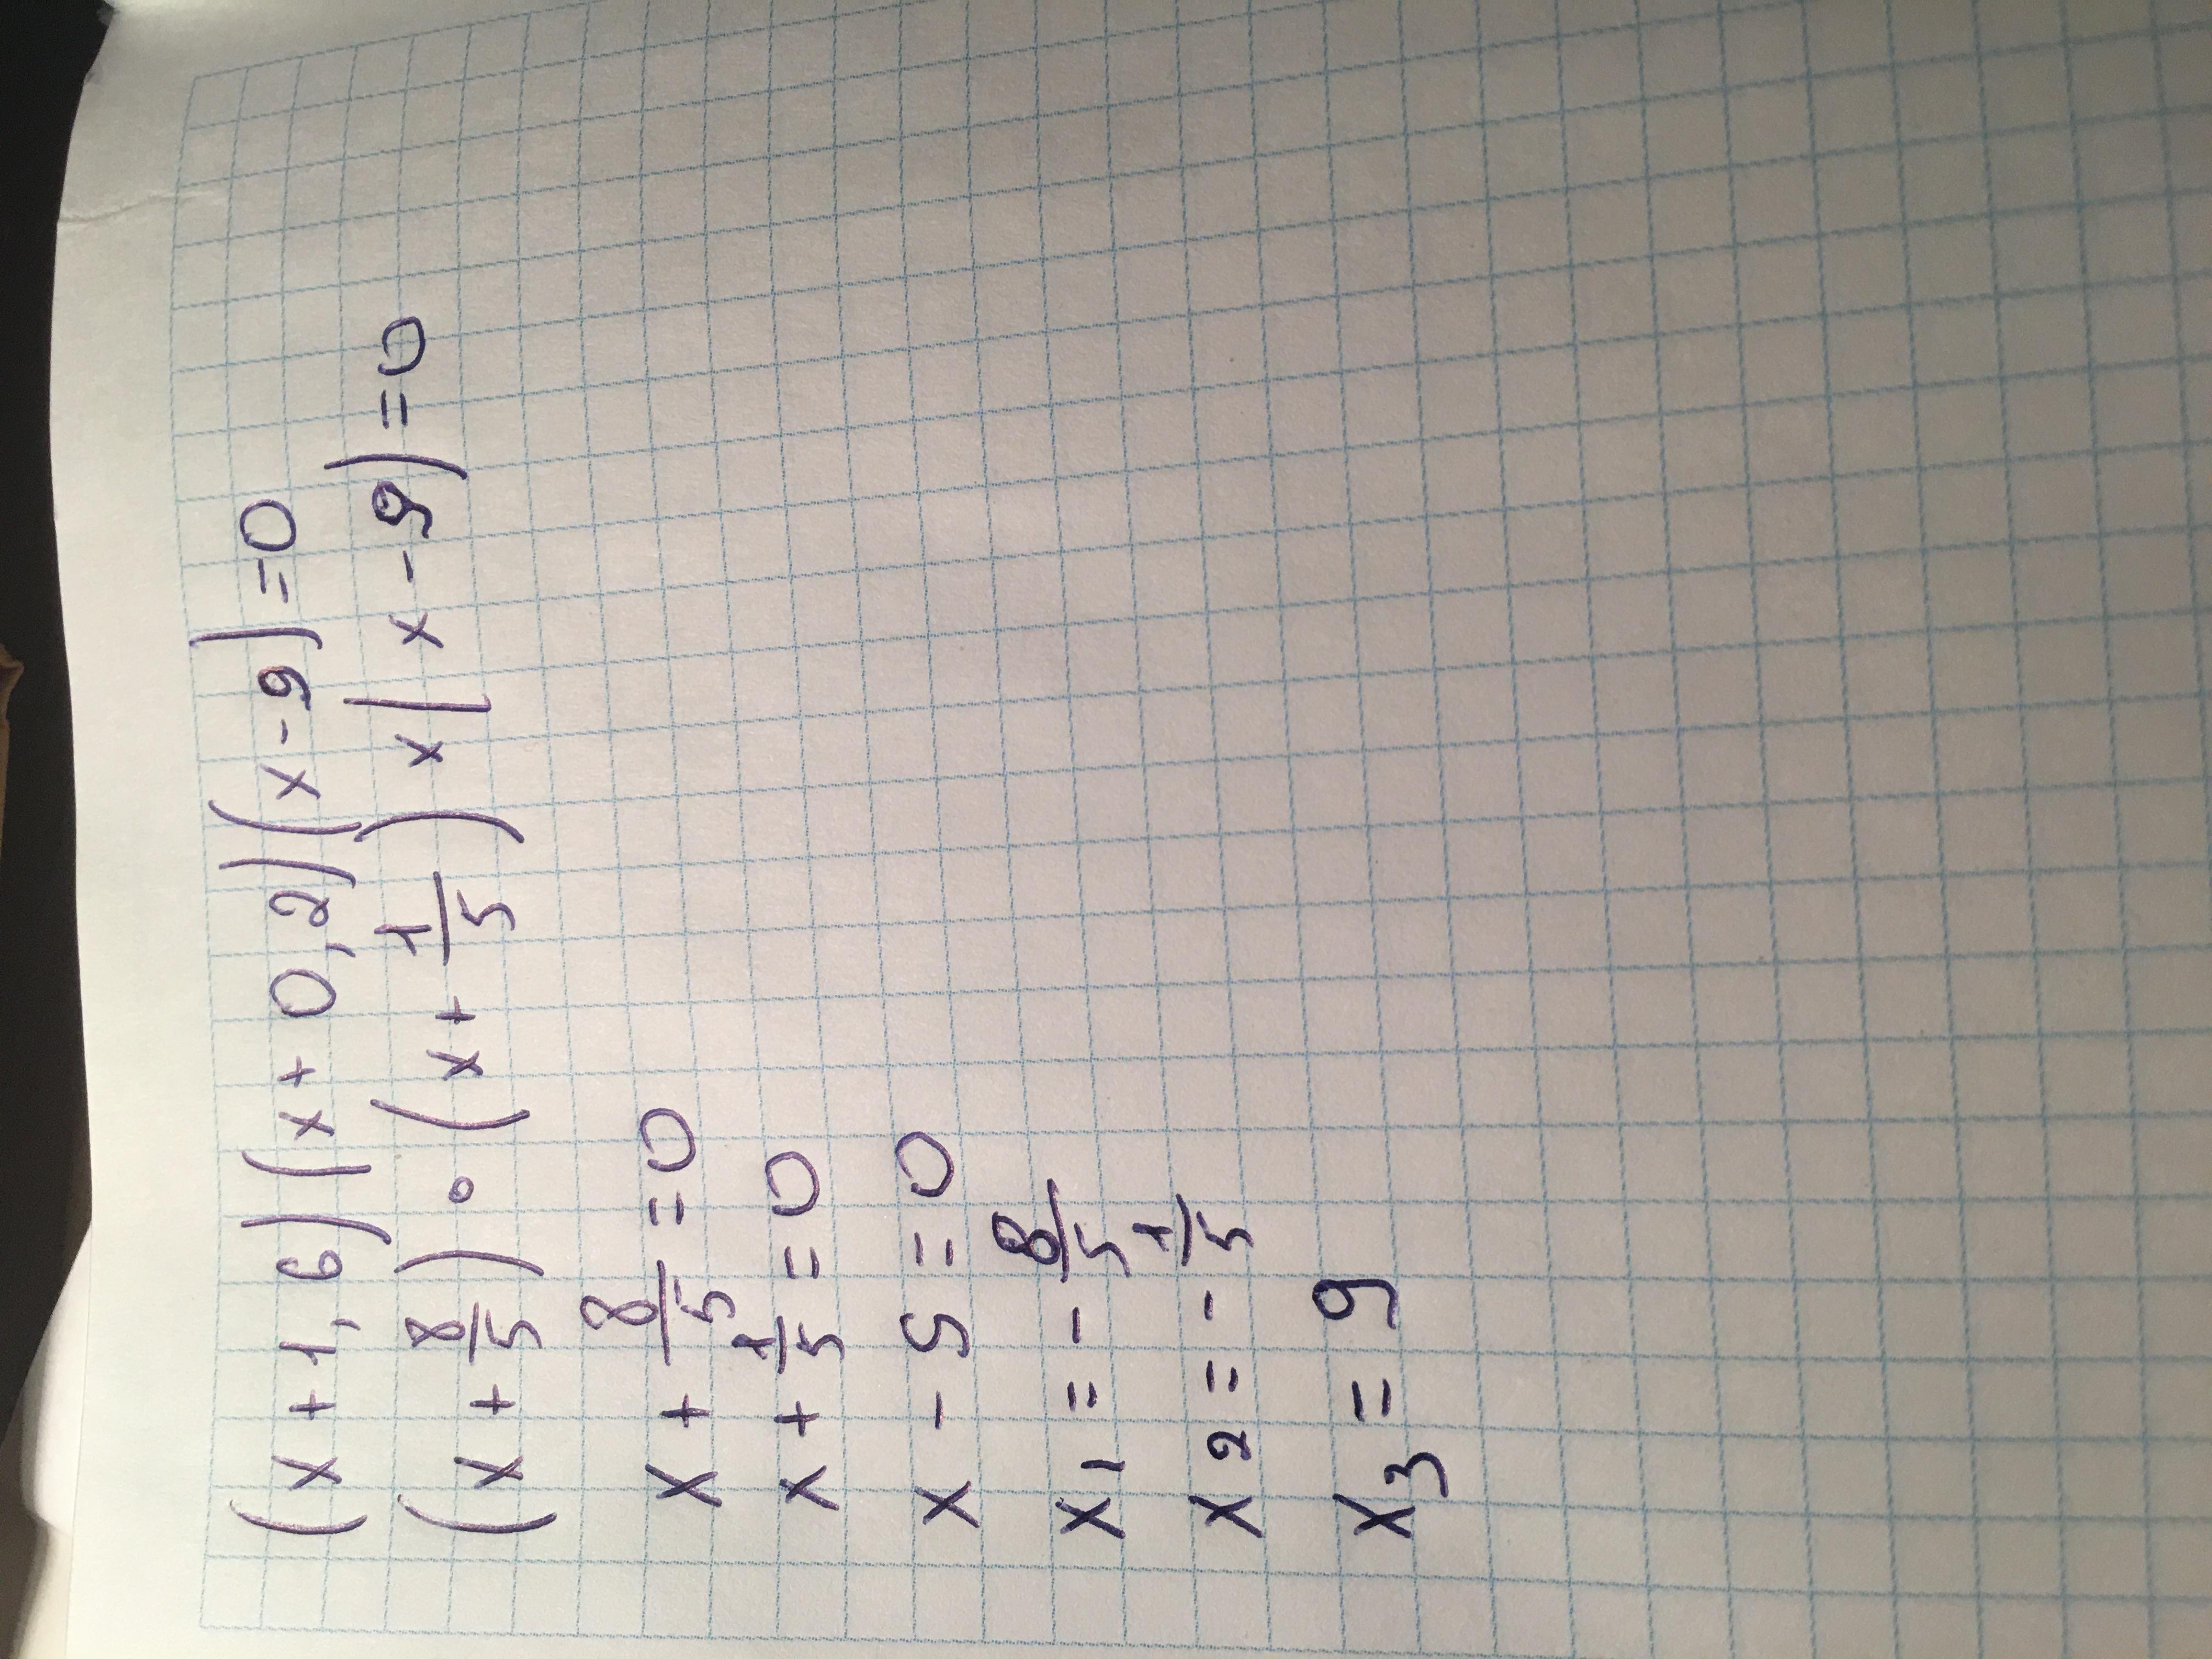 (x + 1,6)(x + 0,2)(x - 9) = 0
(x + 8/5) ∘ (x + 1/5) x (x - 9) = 0
x + 8/5 = 0
x + 1/5 = 0
x - 9 = 0
x1 = - 8/5
x2 = - 1/5
x3 = 9